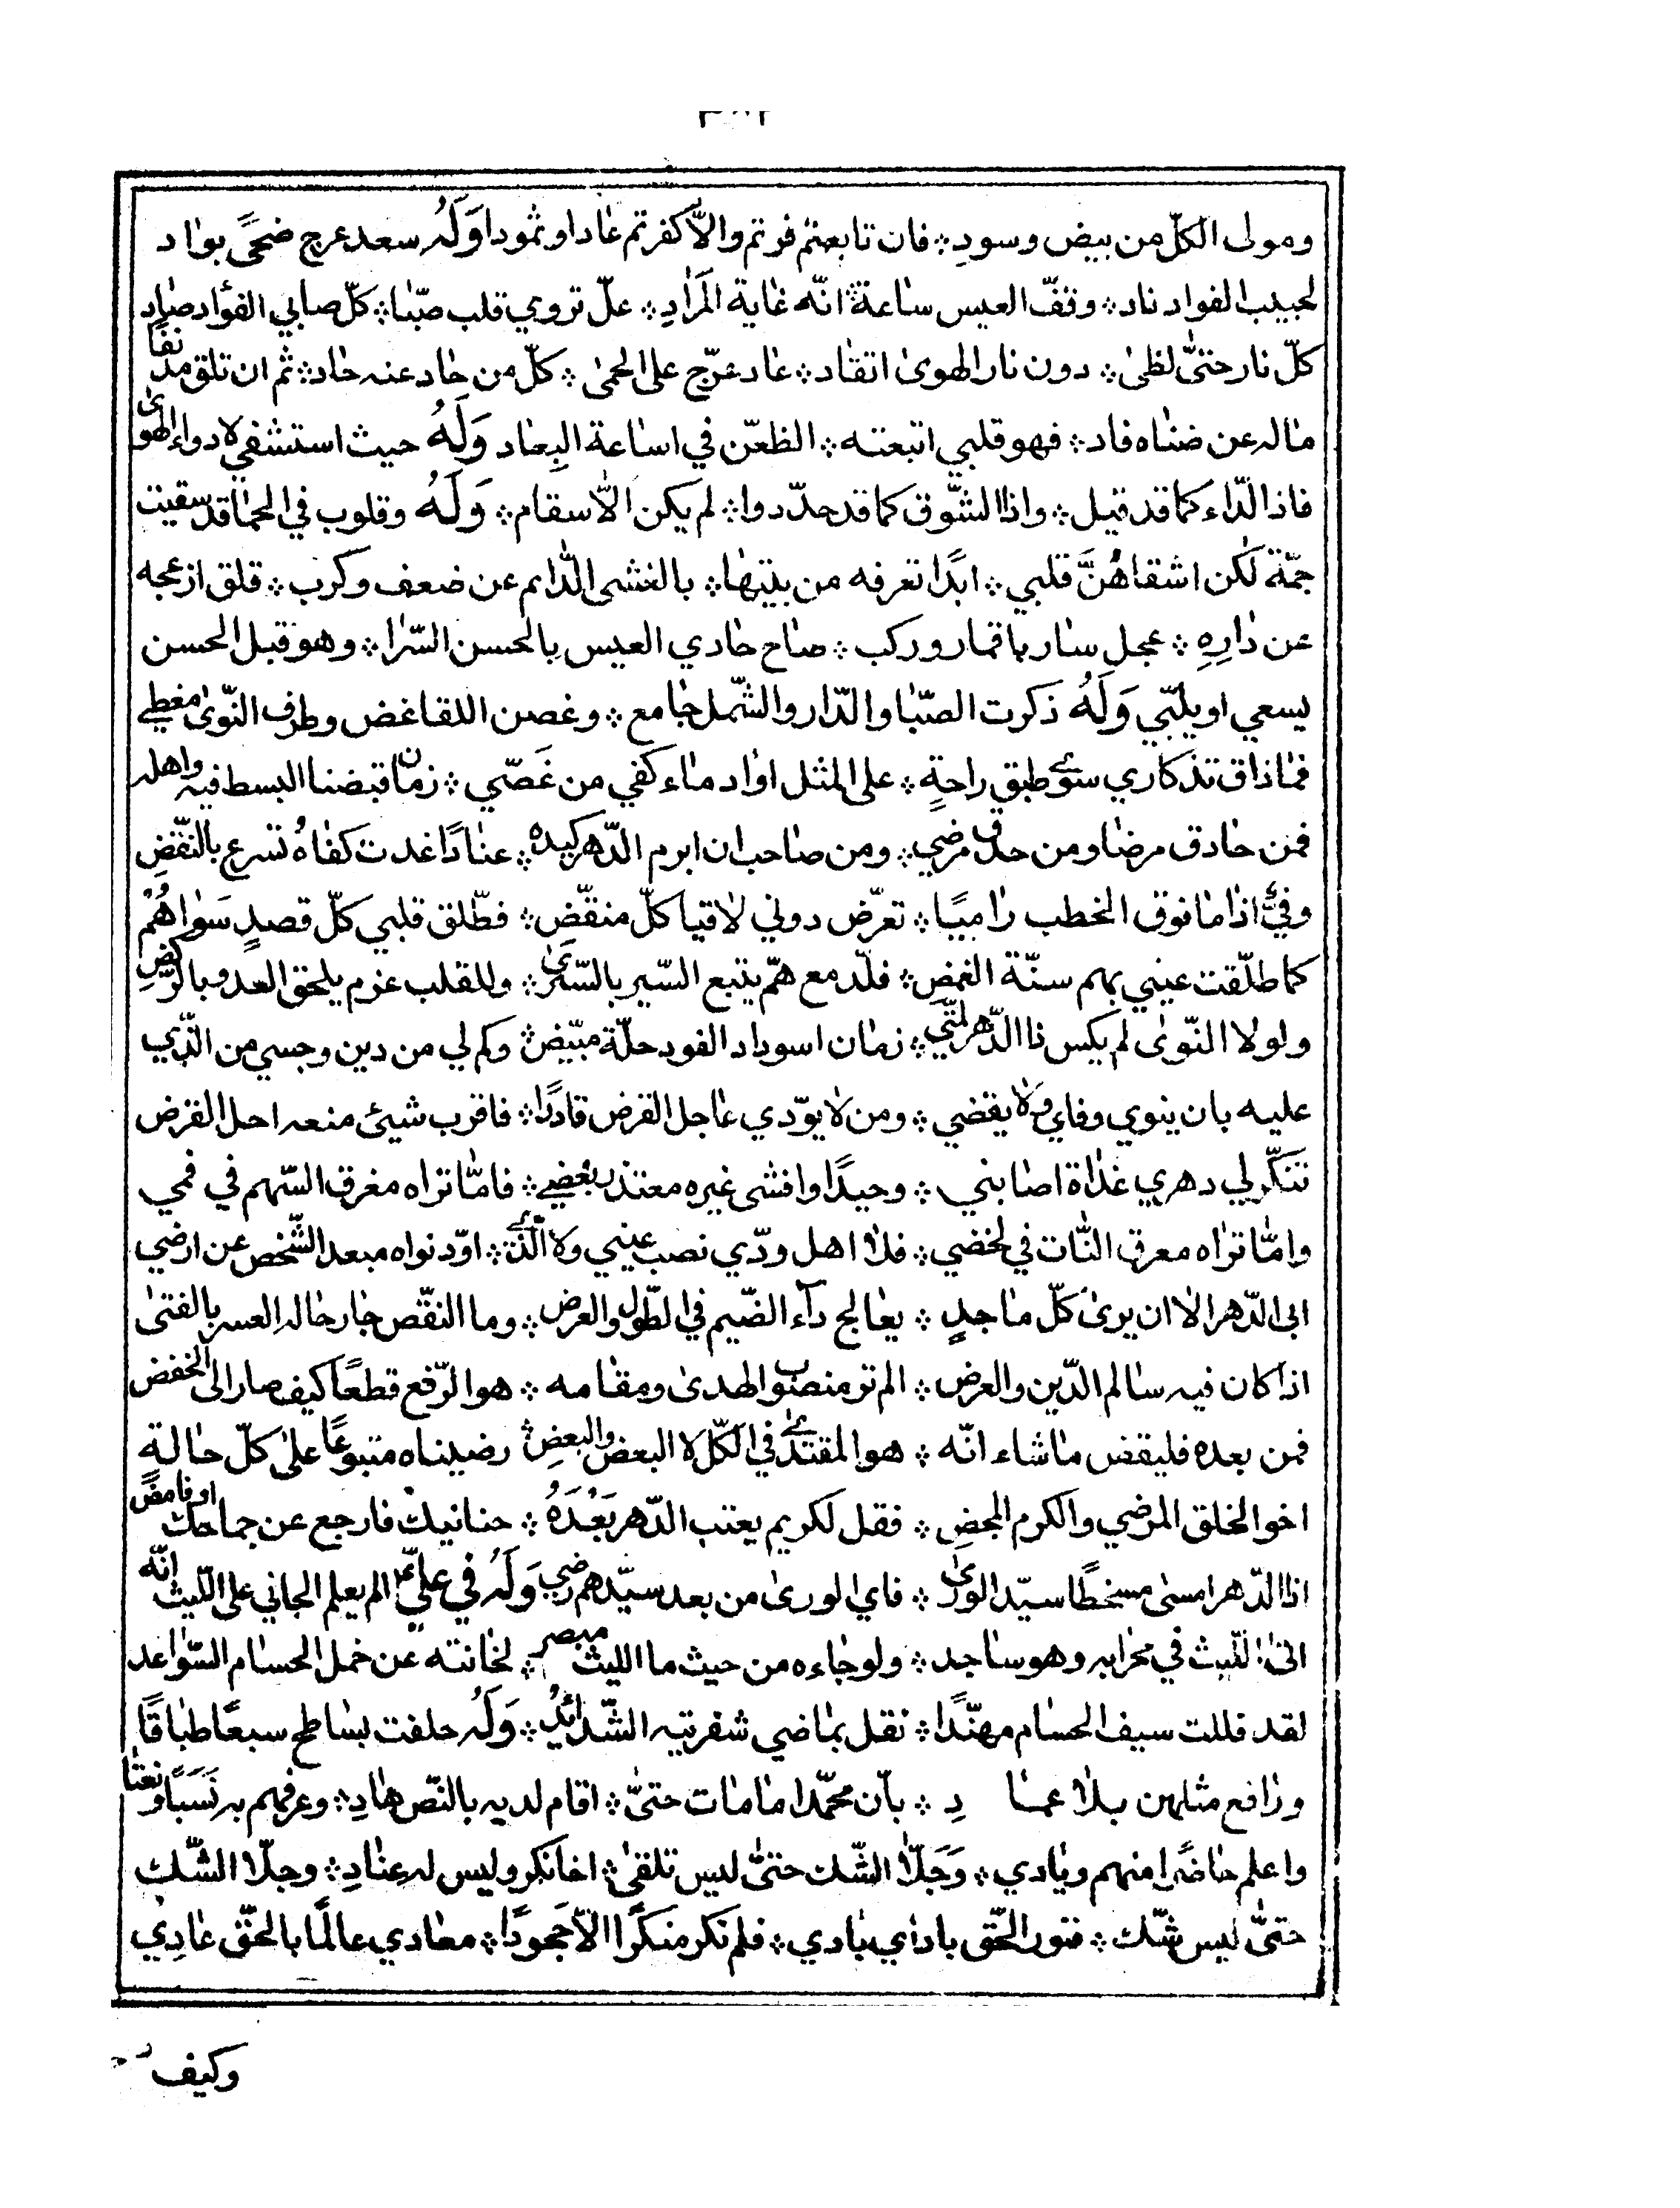 ومولى الكلّ من بيض وسودِ ؞ فان تابعتم فزتم والاّ كفرتم عاداوثمودا وَلَهُ سعد عرج ضحىً بواد
لحبيب الفواد ناد ؞ وقفّ العيس ساعة ؞ انّه غاية المَرادِ ؞ علّ تروي قلب صبّا ؞ كلّ صابي الفؤاد صاد
كلّ نار حتىّ لظىٰ ؞ دون نار الهوىٰ اتقاد ؞ عاد عرّج على الحمىٰ ؞ كلّ من حاد عنه حاد ؞ ثم ان تلق مدنفًا
ماله عن ضناه فاد ؞ فهو قلبي اتبعته ؞ الظعّن في اساعة البِعاد وَلَهُ حيث استشفي لادواء الهوىٰ
فاذا الدّاء كما قد قيل ؞ واذا الشّوق كما قد حدّدوا ؞ لم يكن الاّ سقام ؞ وَلَهُ وقلوب في الحما قد سقيت
جمّة لكن اشقاهُنَّ قلبي ؞ ابدًا تعرفه من بينها ؞ بالغشى الدّايم عن ضعف وكرب ؞ قلق ازعجه
عن دارِهِ ؞ عجل سار باقمار وركب ؞ صاح حادي العيس بالحسن السّرا ؞ وهو قبل الحسن
يسعي او يلبّي وَلَهُ ذكرت الصّبا والدّار والشّمل جامع ؞ وغصن اللقا غض وطرف النّوىٰ مغطي
فماذاق تذكاري سوىٰ طبق راحةٍ ؞ على المثل اواد ماء كفي من غَصّي ؞ زمان قبضنا البسط فيه واهله
فمن حادق مرضا ومن حدق مرضي ؞ ومن صاحب ان ابرم الدّهر كيده ؞ عنادًا غدت كفاهُ تسرع بالنّقضِ
وفيٌّ اذا ما فوق الخطب راميًا ؞ تعرّض دوني لاقيا كلّ منقّضِ ؞ فطّلق قلبي كلّ قصدٍ سَواهُمُ
كما طلّقت عيني بهم سنّة الغمض ؞ فلّد مع همّ يتبع السّير بالسّرىٰ ؞ وللقلب عزم يلحق العدو بالرّكضِ
ولولا النّوىٰ لم يكس ذا الدّهر لمّتي ؞ زمان اسوداد الفود حلّة مبيّض ؞ وكم لي من دين وحسبي من الذّي
عليه بان ينوي وفاي ولا يقضي ؞ ومن لا يوّدي عاجل القرض قادرًا ؞ فاقرب شيئ منعه احل القرض
تَنَكّر لي دهري غداة اصابني ؞ وحيدًا وافشى غيره معتذر بغضي ؞ فامّا تراه مغرق السّهم في فمي
وامّا تراه معرق النّاب في لحضي ؞ فلا اهل ودّي نصب عيني ولا الّذي ؞ اوّد نواه مبعد الشّخص عن ارضي
ابى الدّهر الا ان يرىٰ كلّ ماجدٍ ؞ يعالج دآء الضّيم في الطّول والعرض ؞ وما النقّص جار حاله العسر بالفتىٰ
اذا كان فيه سالم الدّين والعرض ؞ الم تر منصوب الهدىٰ ومقامه ؞ هو الرّفع قطعًا كيف صار الى الخفض
فمن بعده فليقض ما شاء انّه ؞ هو المقتدىٰ في الكلّ لا البعض والبعضِ ؞ رضيناه متبوعًا علىٰ كلّ حالة
اخو الخلق المرضي والكرم المحضِ ؞ فقل لكريم يعتب الدّهر بَعْدَهُ ؞ حنانيك فارجع عن جماحك او فامض
اذا الدّهر امسىٰ مسخطًا سيّد الورىٰ ؞ فاي الورىٰ من بعد سيّدهم رضي وَلَهُ في عليٍّ الم يعلم الجاني على اللّيث انّه
اتىٰ اللّيث في محرابه وهو ساجد ؞ ولو جاءه من حيث ما الليث مبصر ؞ لخانته عن حمل الحسام السّواعد
لقد فللت سيف الحسام مهنّدًا ؞ تقل بماضي شفرتيه الشّدائدُ ؞ وَلَهُ حلفت بساطح سبعًا طباقًا
ورافع مثلهن بلا عما دِ ؞ بأن محمّدا مامات حتىّ ؞ اقام لديه بالنّص هادِ ؞ وعرفهم به نَسَبًا ونعتا
واعلم حاضرًا منهم وبادي ؞ وَجَلّا الشّك حتىّ ليس تلقىٰ ؞ اخا نكر وليس له عنادِ ؞ وجلّا الشّك
حتىّ ليس شّك ؞ فنور الحّق بادٍ اي بادي ؞ فلم نكر منكرًا الاّ جَحودًا ؞ معادي عالمًا بالحّق عادِي
وكيف